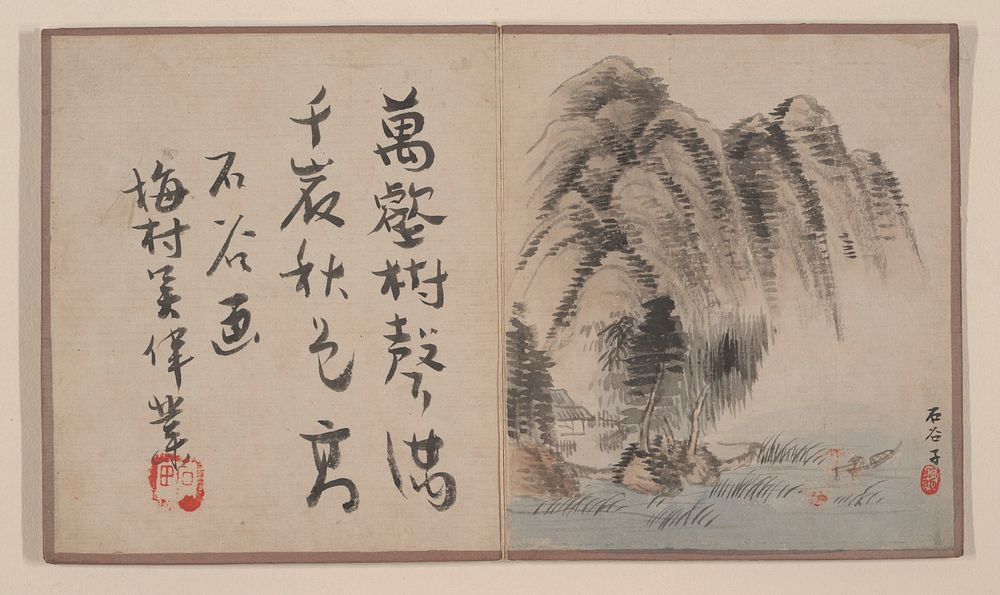 萬壑樹聲满
千巖秋色高
石谷画
梅村吳偉業
石谷子